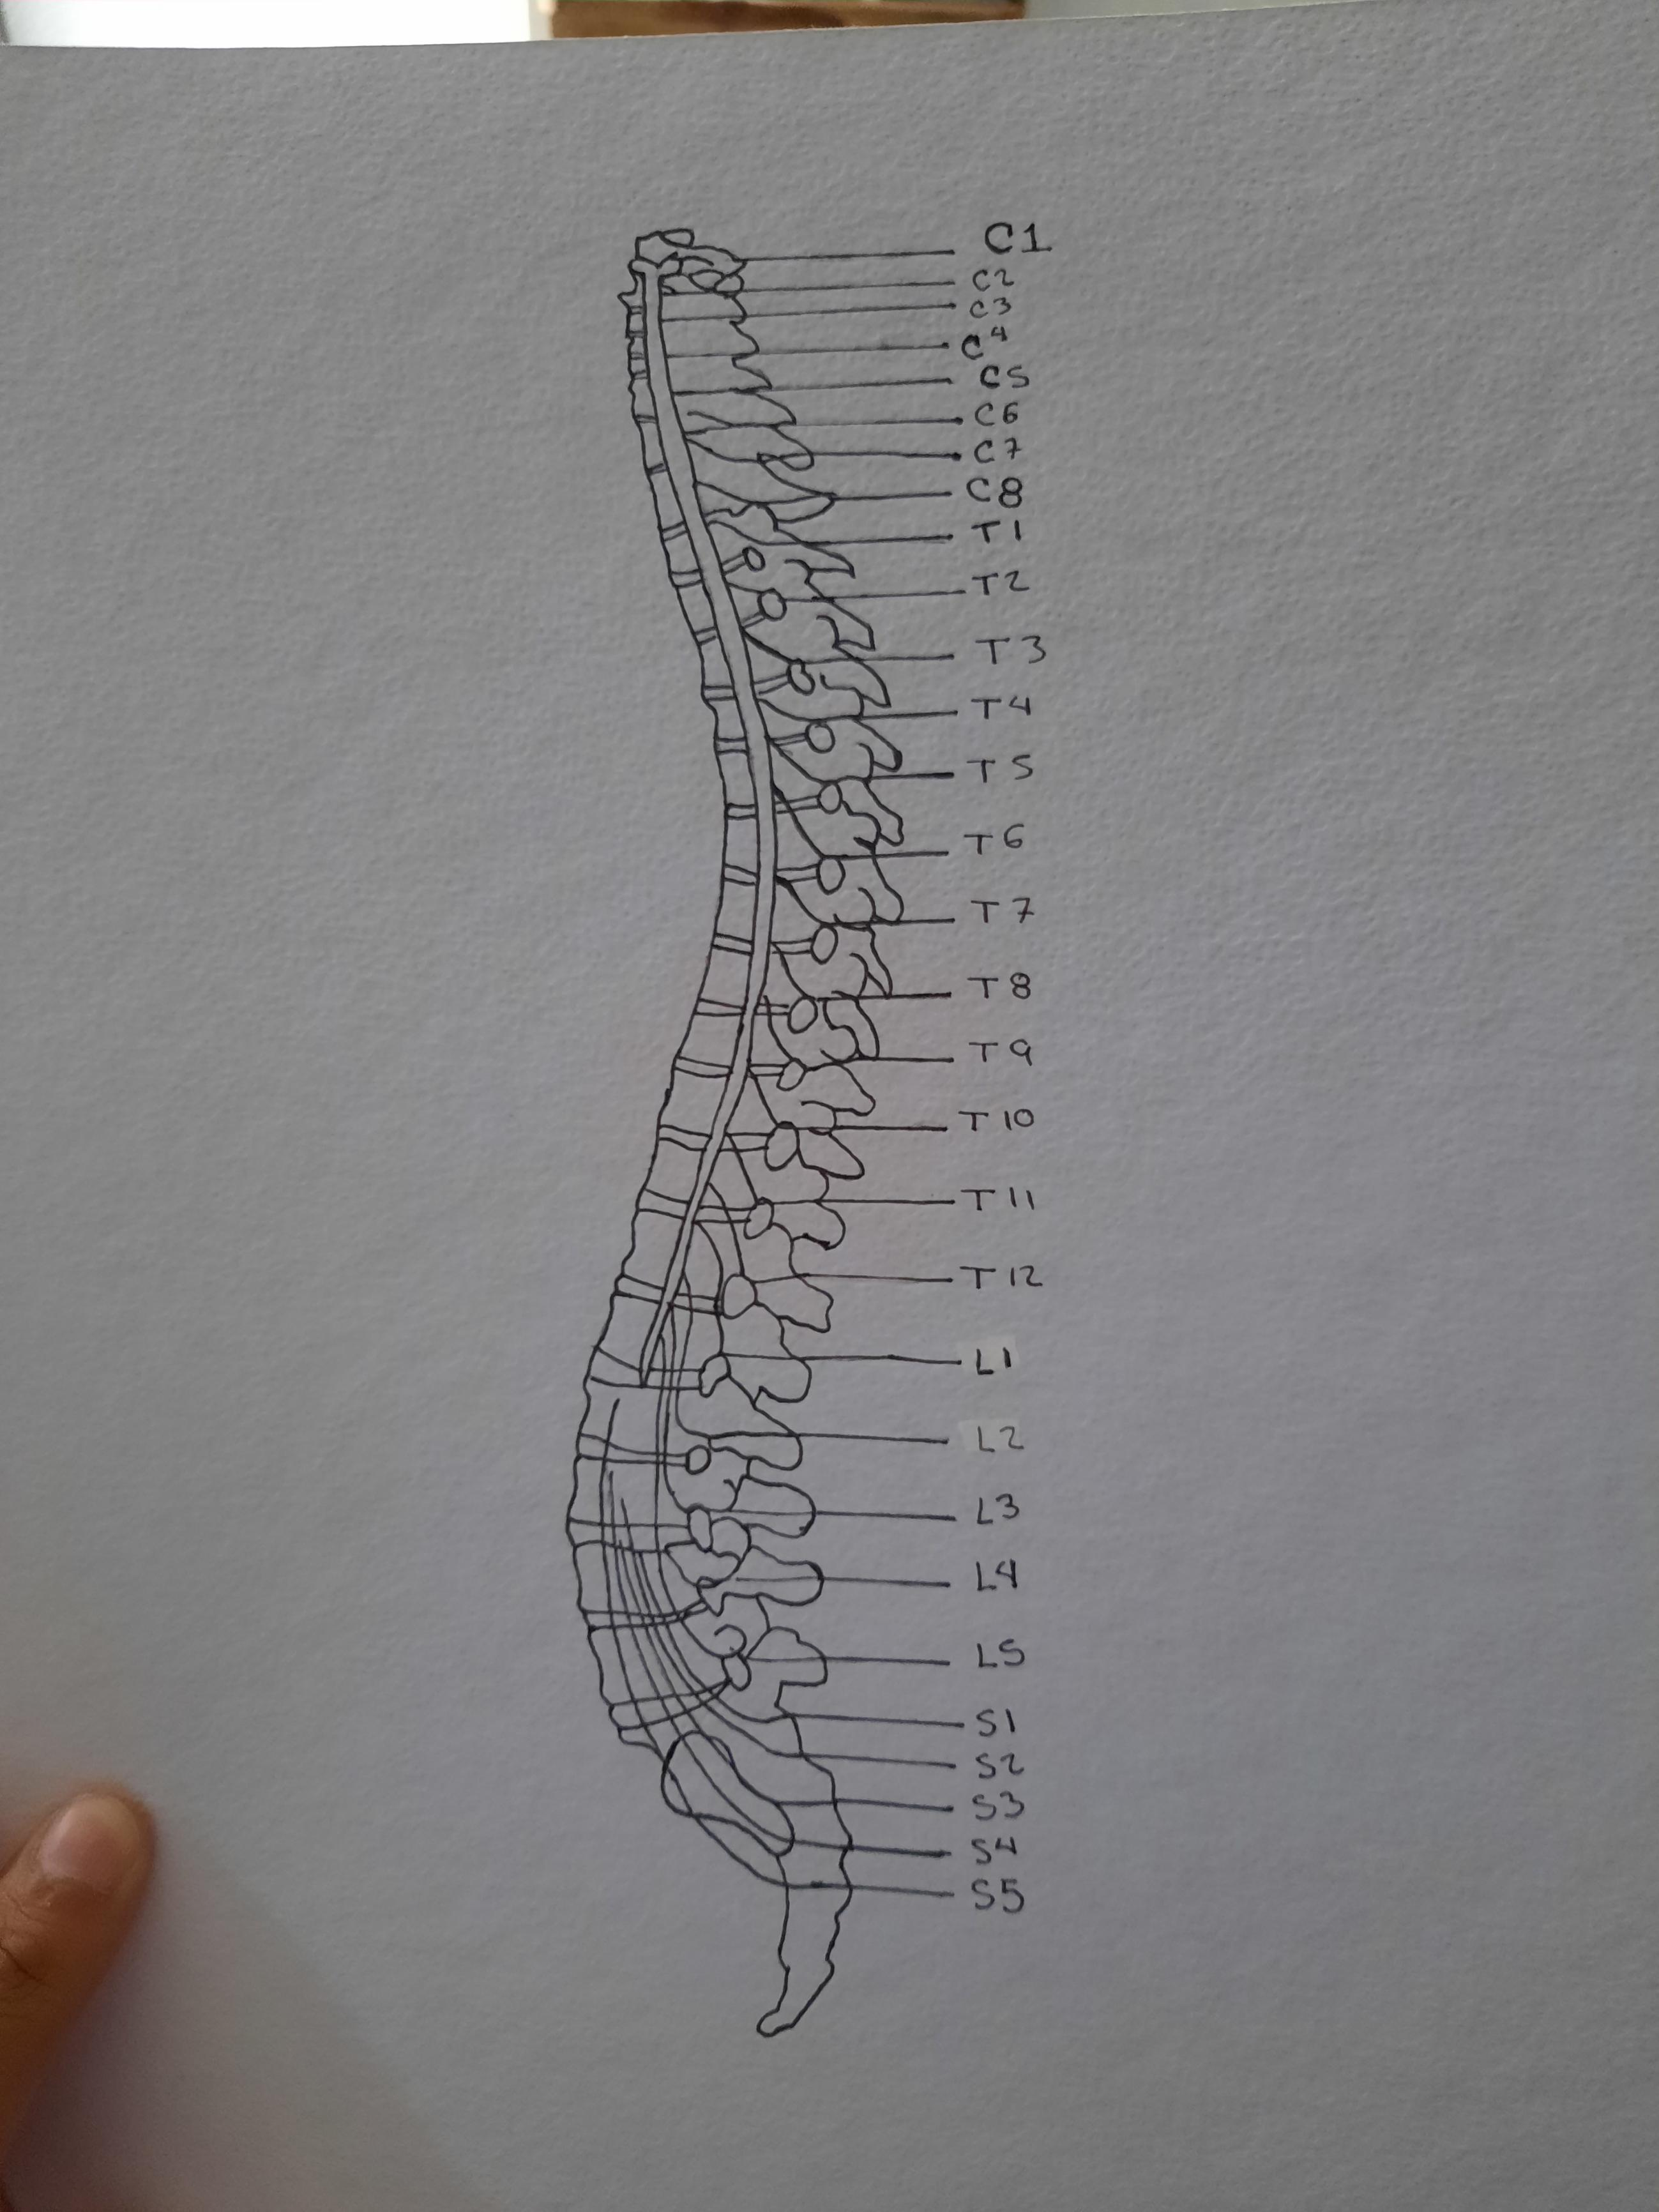 C1
C2
C3
C4
C5
C6
C7
C8
T1
T2
T3
T4
T5
T6
T7
T8
T9
T10
T11
T12
L1
L2
L3
L4
L5
S1
S2
S3
S4
S5